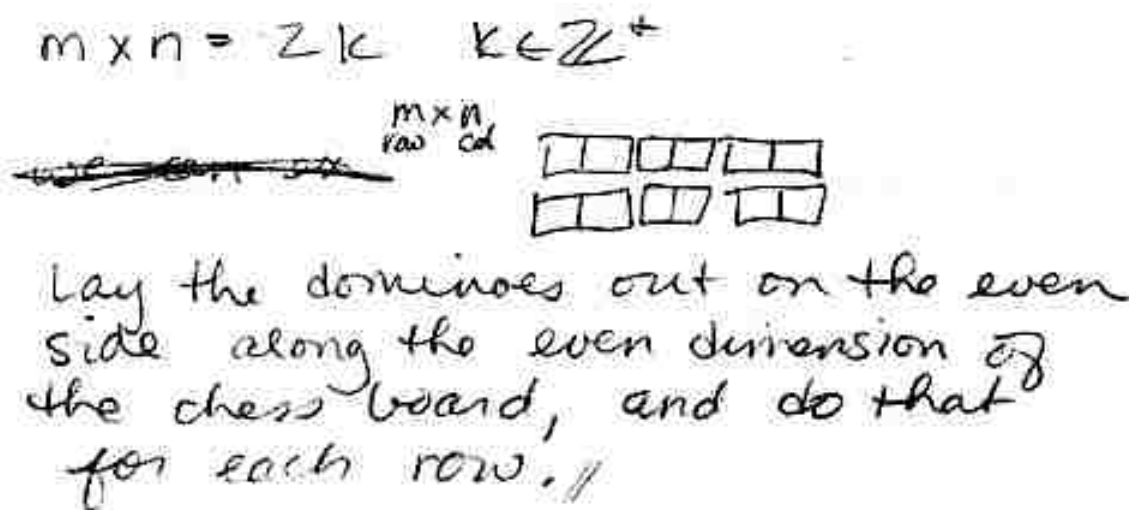 m x n = 2k k∈ℤ⁺
m x n
row col
Lay the dominoes out on the even
side along the even dimension of
the chess board, and do that
for each row. //